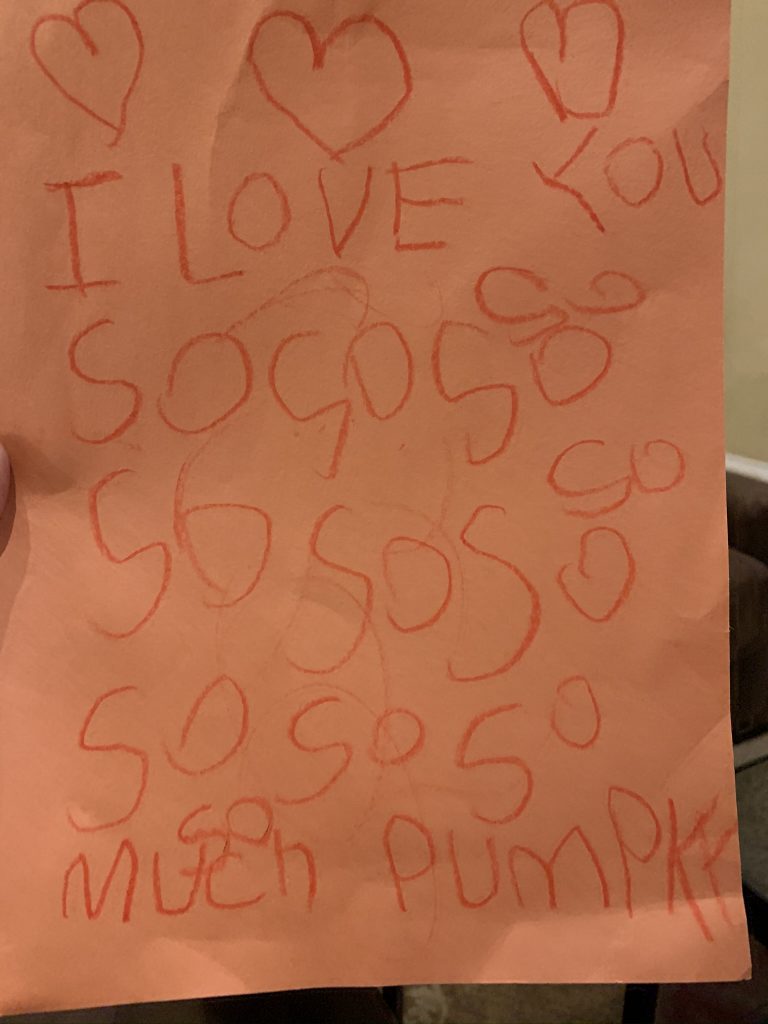 I LOVE YOU
SO
SO SO SO
SO
SO SO SO
SO SO SO
SO
MUCH PUMPKK